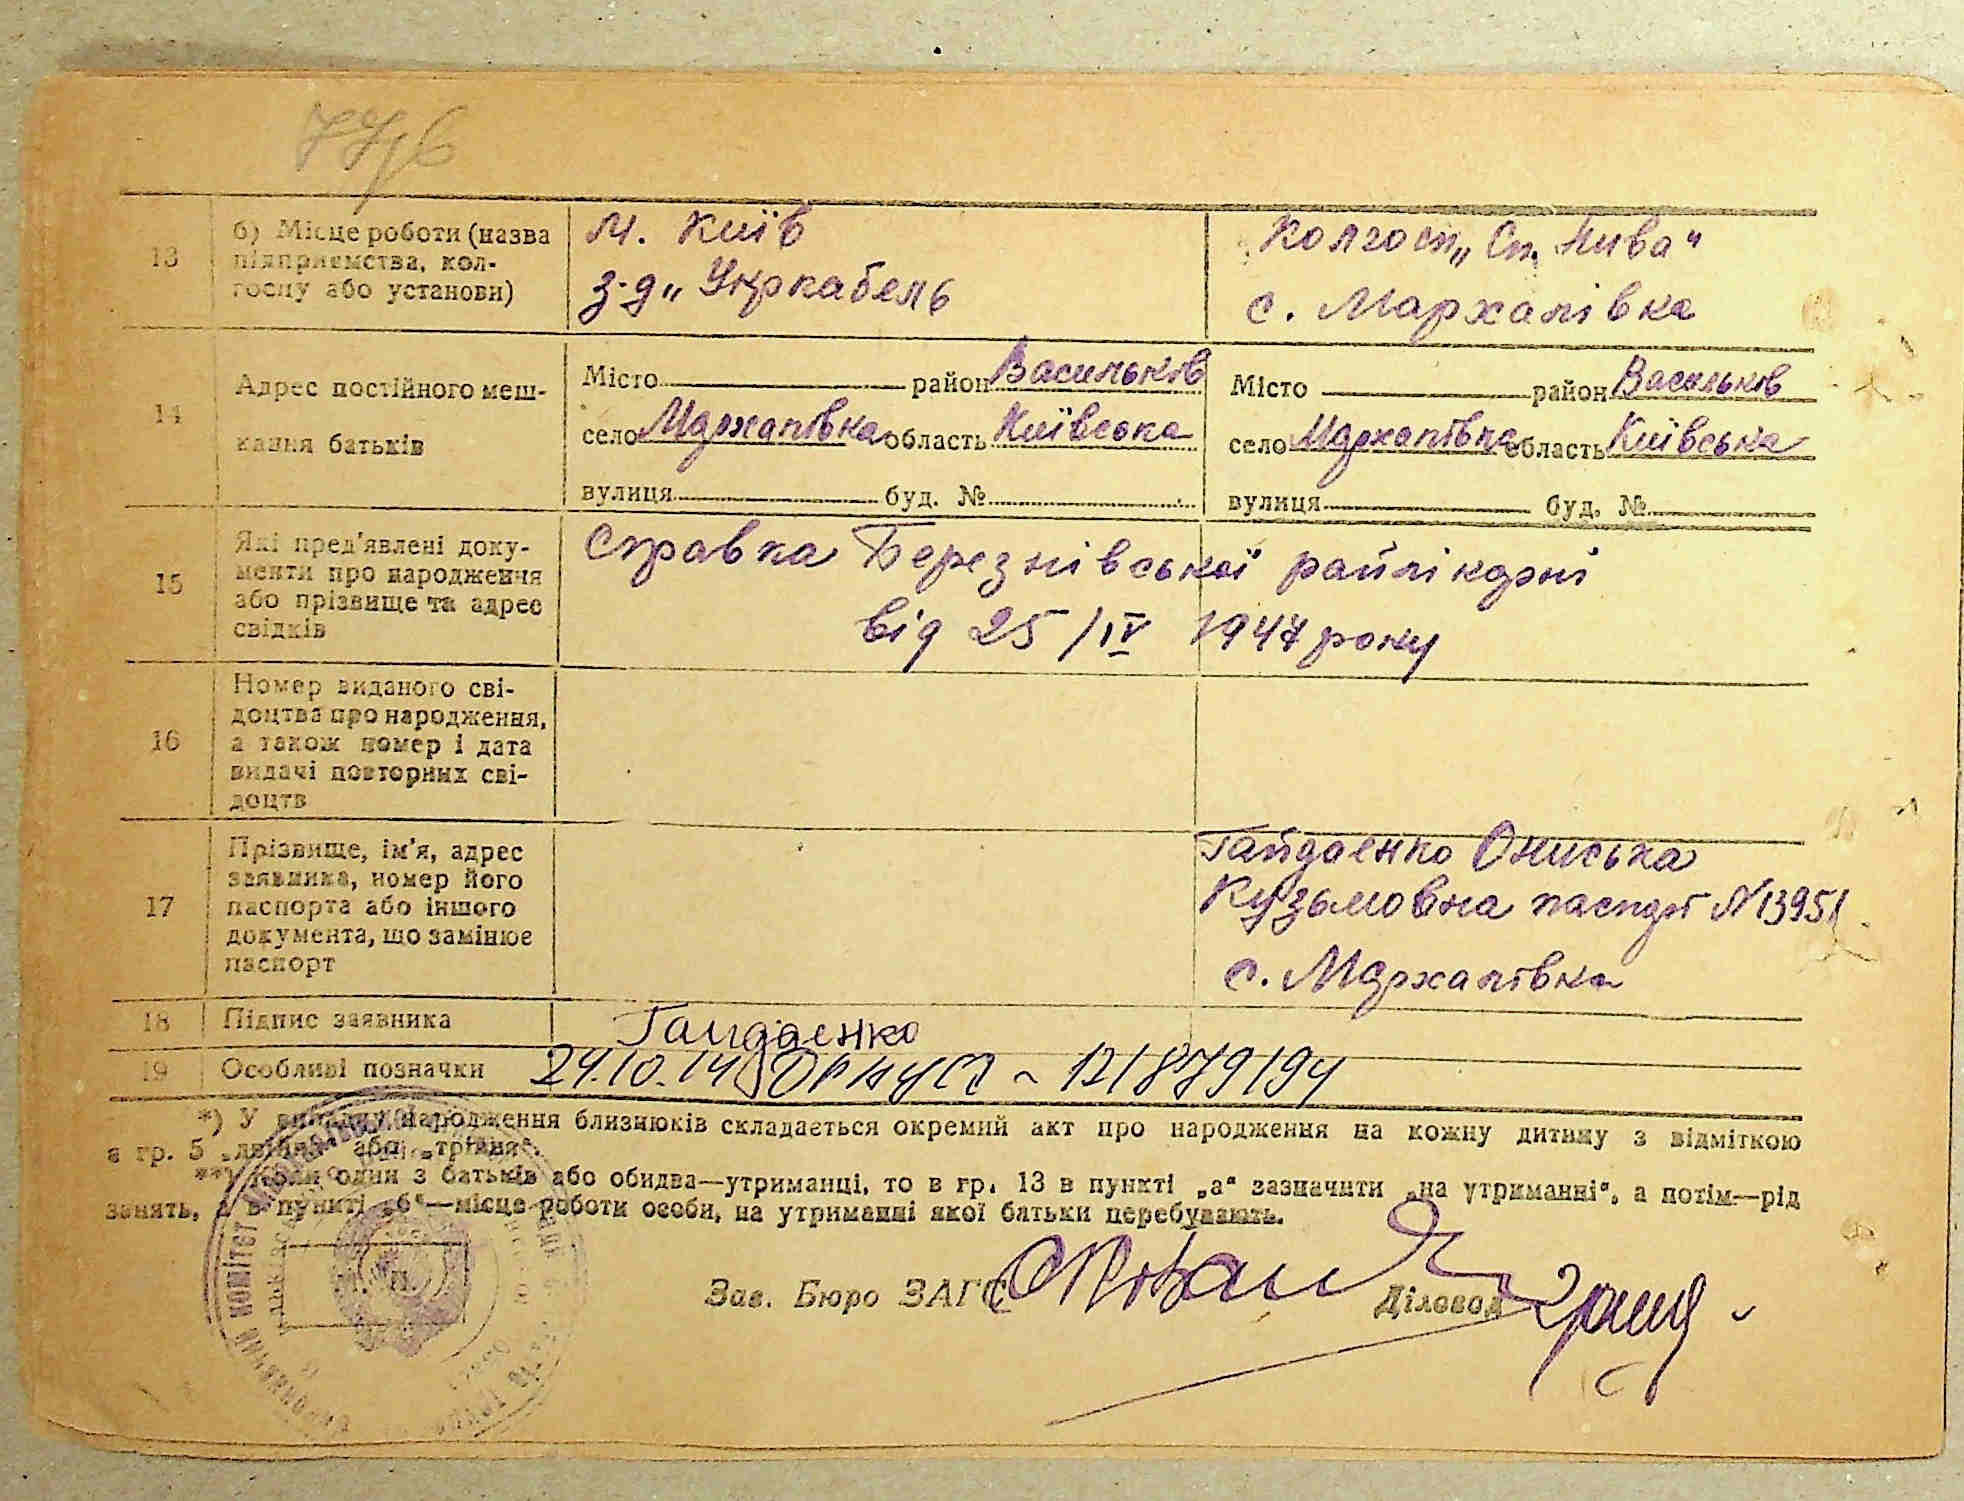 13
б) Місце роботи (назва
підприємства, кол-
госпу або установи)
м. Київ
з-д „Укркабель
Колгосп „Сп. Нива"
с. Мархалівка
14
Адрес постійного меш-
кання батьків
Місто район Васильків
село Мархалівка область Київська
вулиця буд. №
Місто район Васильків
село Мархалівка область Київська
вулиця буд. №
15
Які пред'явлені доку-
менти про народження
або прізвище та адрес
свідків
Справка Березнівської райлікарні
від 25/IV 1947 року
16
Номер виданого сві-
доцтва про народження,
а також номер і дата
видачі повторних сві-
доцтв
17
Прізвище, ім'я, адрес
заявника, номер його
паспорта або іншого
документа, що замінює
паспорт
Гайдаенко Ониська
Кузьмовна паспорт N 13951
с. Мархалівка
18
Підпис заявника
Гайдаенко
19
Особливі позначки
24.10.14 12/879/94
*) У випадку народження близнюків складається окремий акт про народження на кожну дитину з відміткою
в гр. 5 „двійня" або „трійня".
**) Коли один з батьків або обидва—утриманці, то в гр. 13 в пункті „а" зазначити „на утриманні", а потім—рід
занять, а в пункті „б"—місце роботи особи, на утриманні якої батьки перебувають.
Зав. Бюро ЗАГС
Діловод